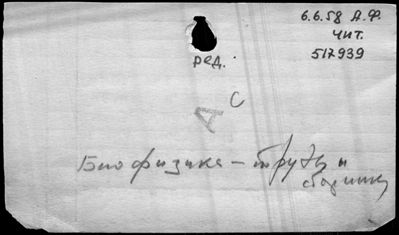 6.6.58 А.Ф.
Чит.
517939
ред.
А с
Биофизика – труды и
сборники